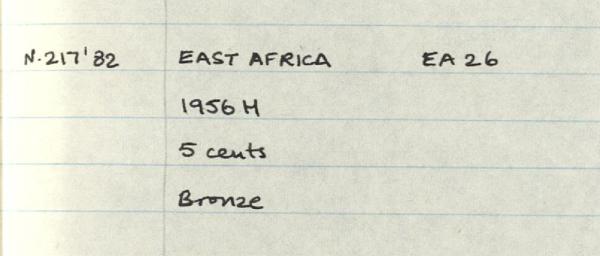 N.217'82 EAST AFRICA EA 26
1956 H
5 cents
Bronze